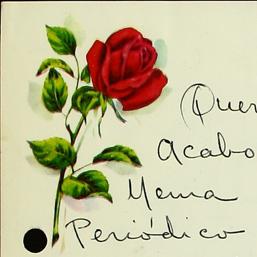 Quer
Acabo
Mema
Periódico